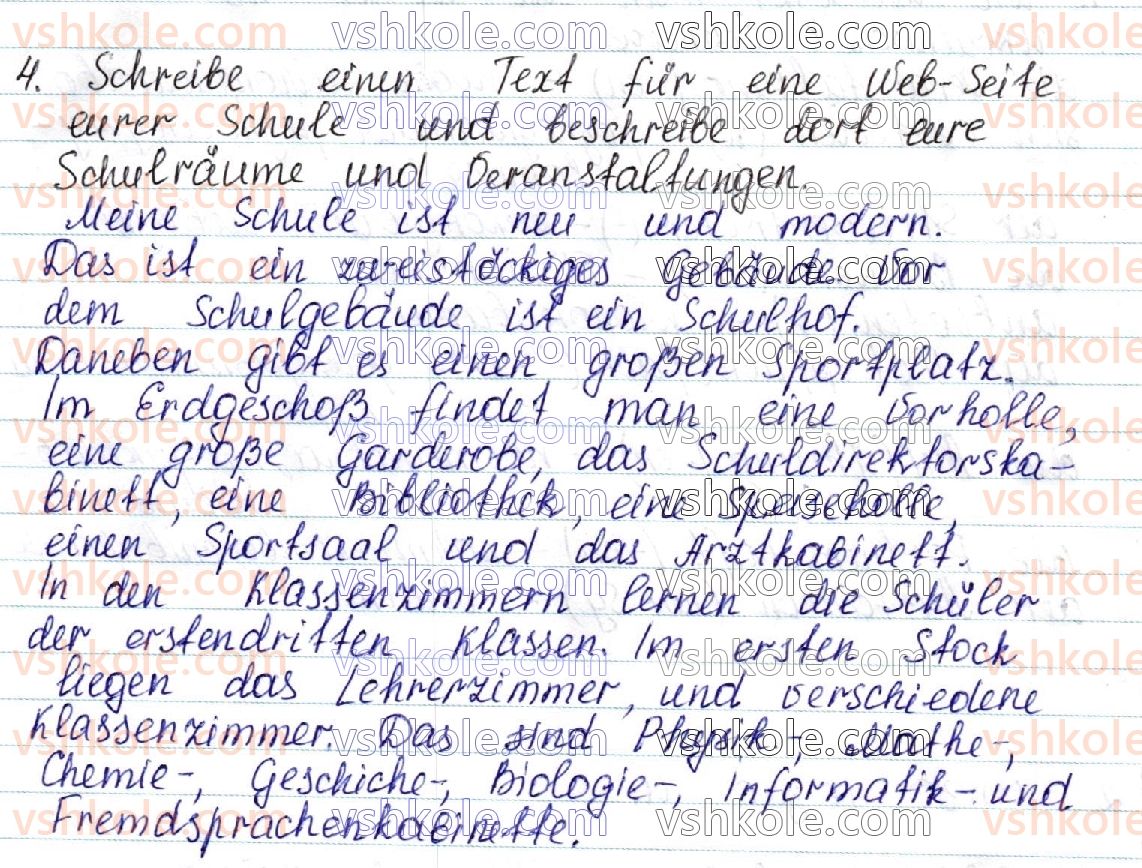 4. Schreibe einen Text für eine Web-Seite
eurer Schule und beschreibe dort eure
Schulräume und Veranstaltungen.
Meine Schule ist neu und modern.
Das ist ein zweistöckiges Gebäude. Vor
dem Schulgebäude ist ein Schulhof.
Daneben gibt es einen großen Sportplatz.
Im Erdgeschoß findet man eine Vorholle,
eine große Garderobe, das Schuldirektorska-
binett, eine Bibliothek, eine Speiseholle,
einen Sportsaal und das Arztkabinett.
In den Klassenzimmern lernen die Schüler
der erstendritten Klassen. Im ersten Stock
liegen das Lehrerzimmer, und verschiedene
Klassenzimmer. Das sind Physik-, Mathe-,
Chemie-, Geschiche-, Biologie-, Informatik- und
Fremdsprachenkabinette.
vshkole.com